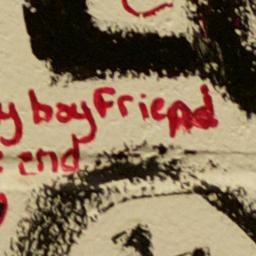 y boyfriend
end